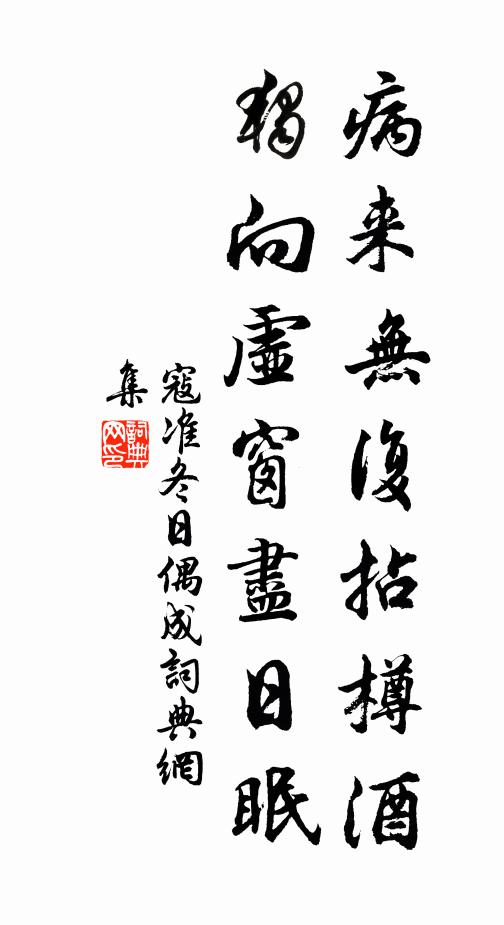 病来無復拈樽酒
獨向虛窗盡日眠
寇准冬日偶成詞典網
集
詞典网印